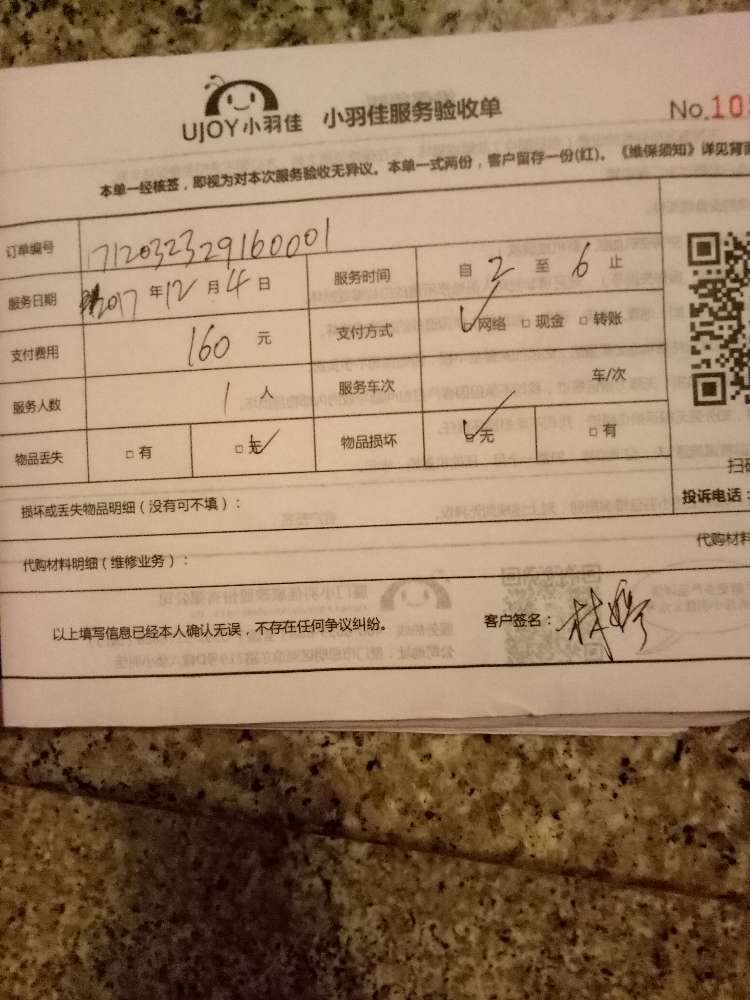 UJOY小羽佳 小羽佳服务验收单 No.10
本单一经核签，即视为对本次服务验收无异议。本单一式两份，客户留存一份(红)。《维保须知》详见背面
订单编号 1712032329160001
服务日期 2017 年 12 月 4 日 服务时间 自 2 至 6 止
支付费用 160 元 支付方式 ☑网络 □现金 □转账
服务人数 1 人 服务车次 车/次
物品丢失 □有 ☑无 物品损坏 ☑无 □有
扫
损坏或丢失物品明细（没有可不填）： 投诉电话：
代购材料明细（维修业务）： 代购材料
以上填写信息已经本人确认无误，不存在任何争议纠纷。 客户签名：林